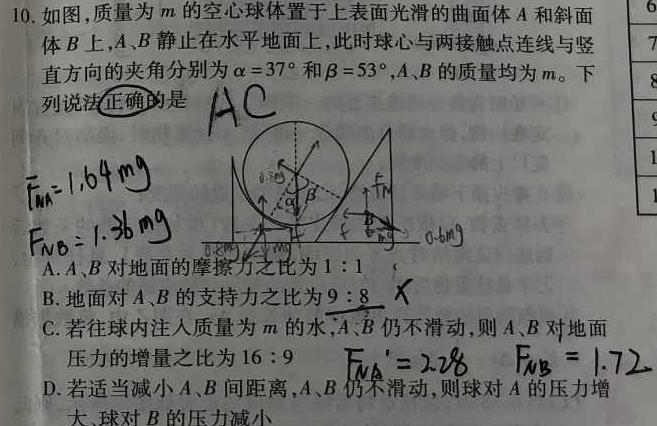 10. 如图,质量为 m 的空心球体置于上表面光滑的曲面体 A 和斜面
体 B 上,A、B 静止在水平地面上,此时球心与两接触点连线与竖
直方向的夹角分别为 α=37° 和 β=53°,A、B 的质量均为 m。下
列说法正确的是 AC
F_NA=1.64mg
F_NB=1.36mg
0.8mg
α
β
F_N
f
f
0.8mg
mg
mg
0.6mg
A. A、B 对地面的摩擦力之比为 1:1
B. 地面对 A、B 的支持力之比为 9:8 X
C. 若往球内注入质量为 m 的水,A、B 仍不滑动,则 A、B 对地面
压力的增量之比为 16:9
F_NA'=2.28 F_NB=1.72
D. 若适当减小 A、B 间距离,A、B 仍不滑动,则球对 A 的压力增
大、球对 B 的压力减小
6
7
8
9
1
1